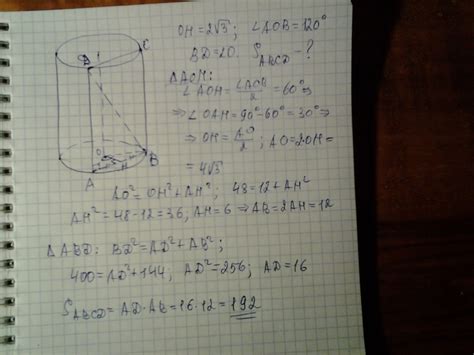 OH = 2√3; ∠AOB = 120°
BD = 20. S_ABCD - ?
△AOH:
∠AOH = ∠AOB/2 = 60° ⇒
⇒ ∠OAH = 90° - 60° = 30° ⇒
⇒ OH = AO/2; AO = 2·OH =
= 4√3
AO² = OH² + AH²; 48 = 12 + AH²
AH² = 48 - 12 = 36, AH = 6 ⇒ AB = 2AH = 12
△ABD: BD² = AD² + AB²;
400 = AD² + 144, AD² = 256; AD = 16
S_ABCD = AD · AB = 16 · 12 = 192
D
C
O
H
B
A